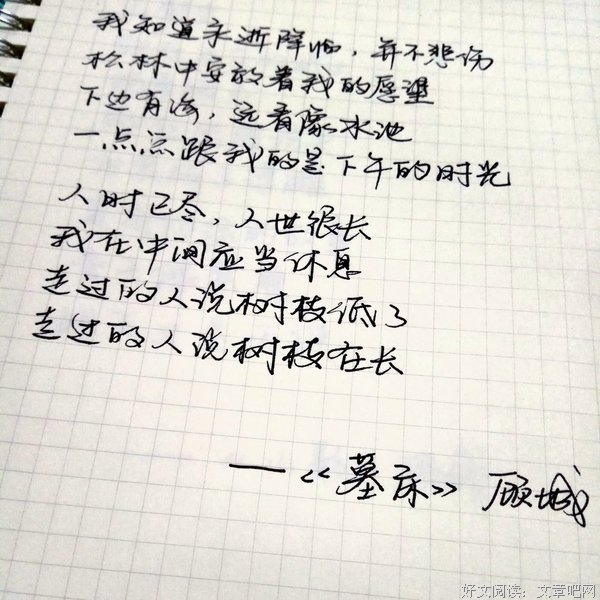 我知道永逝降临，并不悲伤
松林中安放着我的愿望
下边有海，远看像水池
一点点跟我的是下午的时光
人时已尽，人世很长
我在中间应当休息
走过的人说树枝低了
走过的人说树枝在长
——《墓床》 顾城
好文阅读：文章吧网